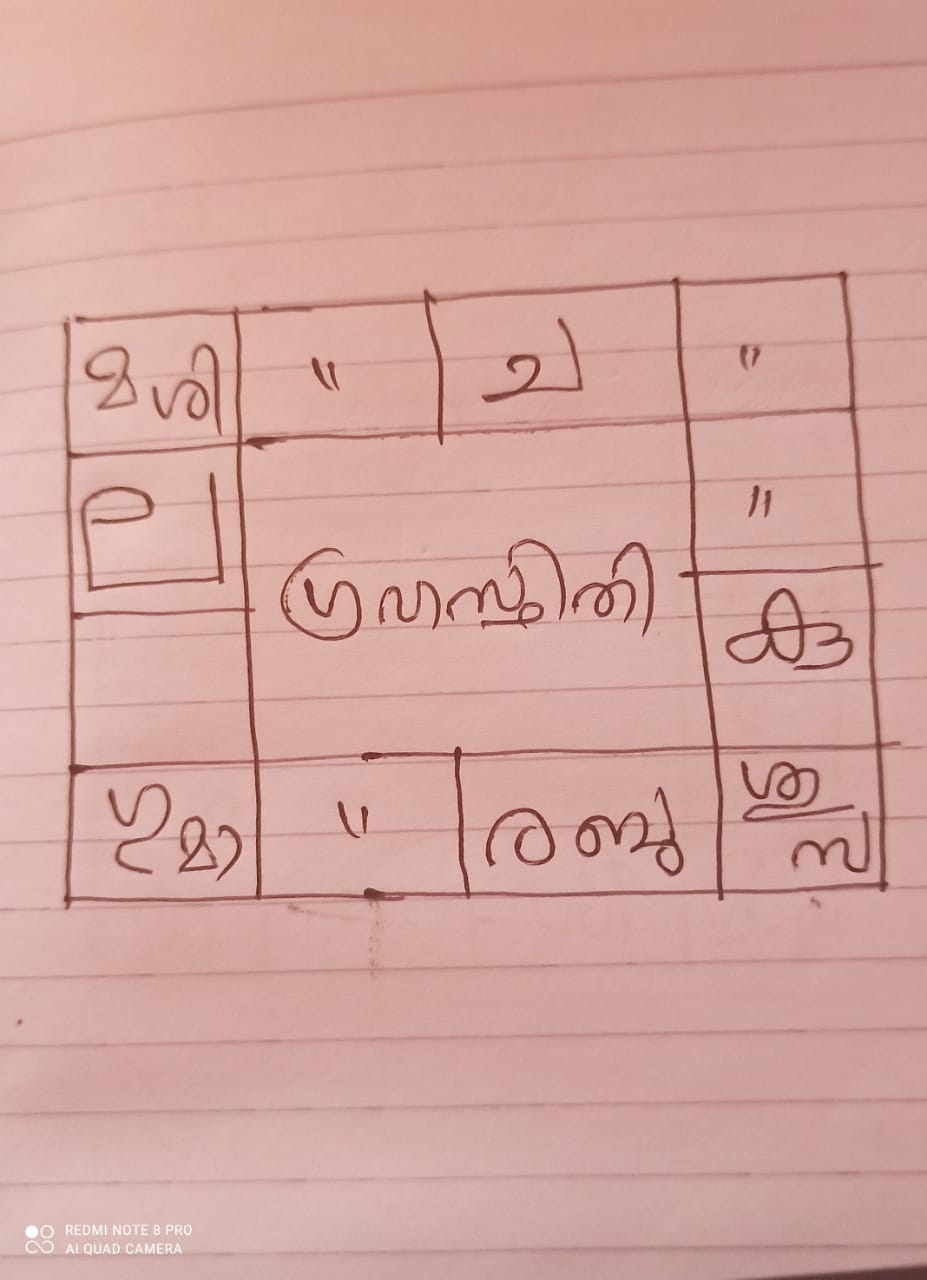 മ ശി " ച "
ല "
ഗ്രഹസ്ഥിതി
കു
ഗു മാ " ര ബു ശു
സ
REDMI NOTE 8 PRO
AI QUAD CAMERA